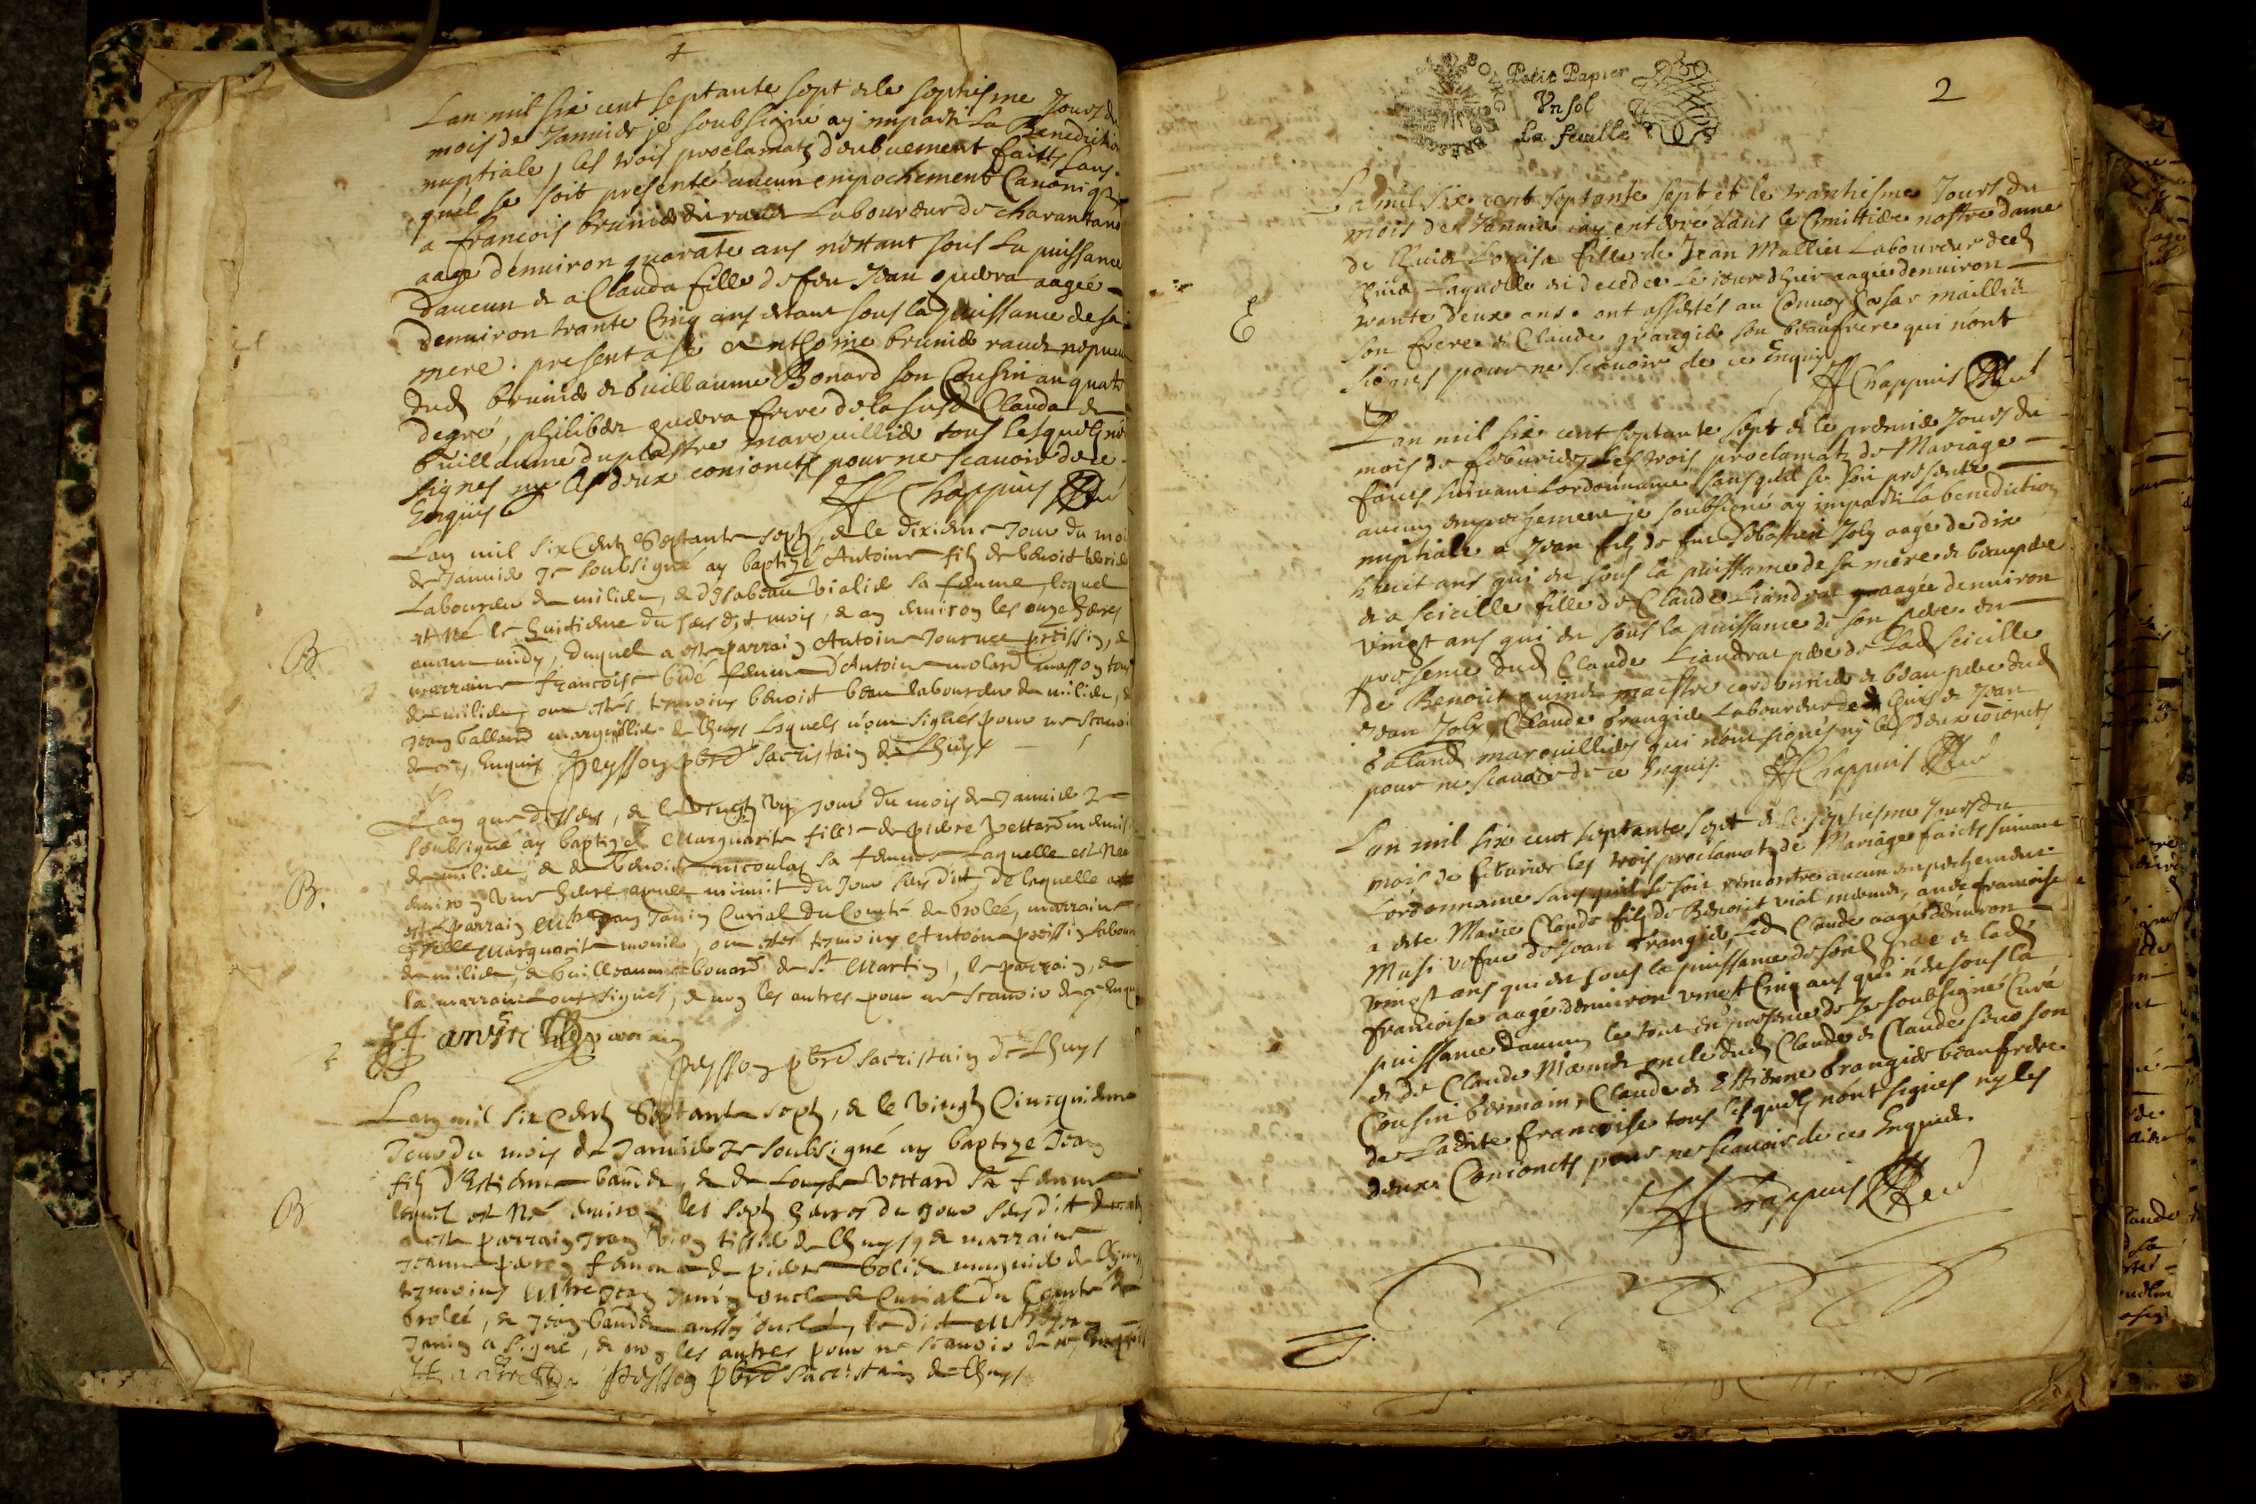 L'an mil six cent septante sept & le septiesme Jour du
mois de Januier je soubsigné ay imparti La Benediction
nuptiale, les trois proclamatz deubuement faitts sans
quil se soit presenté aucun enpechement Canonique
a francois brunier Laboureur de charantand
aagé denuiron quarate ans n'estant sous La puissance
daucun & a Clauda fille de feu Jean aagée
denuiron trante Cinq ans estant sous la puissance de sa
mere. present a Anthoine brunier nepueu
dud brunier & Guillaume Bonard son Cousin au quatr
degré, philiber frere de la susd Clauda &
Guillaume duplastre maroüillier tous lesquels nōt
signes ny les deux conioncts pour ne scauoir de ce
Enquis
Chappuis Curé
Lan mil six Centz Septante septz, & le dixieme Jour du moi
de Januier Je soubsigné ay baptizé Antoine filz de benoit
Laboureur de milieu, & d'ysabeau vialier sa femme, lequel
est Né le huictieme du susdit mois, & an enuiron les onze heures
auant midy, duquel a esté parrain Antoine &
marraine francoise femme d'Antoine molard masson tous
de milieu, ont estés tesmoins benoit beau laboureur de milieu, &
Jean balland marguillier de Lhuys Lesquels n'ont signés pour ne scauoi
de ce Enquis Peysson pbre Sacristain de Lhuys
B
Lan que dessus, & le vingtz Jour du mois de Januier Je
soubsigné ay baptizé Marguarite fille de pierre vettard
de milieu, & de benoite nicoulas sa femme Laquelle est Née
enuiron une heure apres minuit du Jour susdit, de laquelle a
esté parrain Mtre Jean Janin Curial du Comté de Grolée, marraine
Marguarite monier, ont estés tesmoins Antoine laboure
de milieu, & Guilleaume bonard de St Martin, le parrain, &
la marraine ont signés, & non les autres pour ne scauoir de ce Enquis
B.
Peysson pbre sacristain de Lhuys
Lan mil six Centz Septante septz, & le Vingtz Cinequieme
Jour du mois de Januier Je soubsigné ay baptizé Jean
filz d'Estienne & de Louyse vettard sa femme
lequel est Né enuiron les septz heures du Jour susdit
a esté parrain Jean tissier de Lhuys, & marraine
Jeanne femme de pierre de Lhuys
tesmoins Mtre Jean Janin oncle & Curial du Comté de
Grolée, & Jean aussy oncle, le dit Mtre Jean
Janin a signé, & non les autres pour ne scauoir de ce Enquis
Peysson pbre Sacristain de Lhuys
B
Petit Papier
Vn sol
La feuille
2
La mil six cent septante sept et le trantiesme Jour du
mois de Januier ay enterre dans le Cimittiere nostre dame
de Lhuis Louisa fille de Jean Mallier Laboureur dud
Lhuis Laquelle est decedée Le iour dhier aagée denuiron
trante deux ans. ont assistés au Conuoy Cesar maillier
son frere & Claude grangier son beaufrere qui n'ont
signes pour ne scauoir de ce Enquis
Chappuis Curé
E
Lan mil six cent septante sept & le premier Jour du
mois de feburier Les trois proclamatz de Mariage
faicts suiuant Lordonnance sans quil se soit presenté
aucun empechement je soubsigné ay imparti la benediction
nuptiale a Jean filz de feu Sebastien Joly aagé de dix
huit ans qui est sous la puissance de sa mere & beaupere
& a Seicille fille de Claude Liandrat aagée denuiron
vingt ans qui est sous la puissance de son pere en
presence dud Claude Liandrat pere de Lad Seicille
de Benoict maistre cordonnier & beau pere dud
Jean Joly, Claude Grangier Laboureur de Lhuis & Jean
Baland maroüillier qui n'ont signés ny les deux conioncts
pour ne scauoir de ce Enquis.
Chappuis Curé
L'an mil six cent septante sept & le septiesme Jour du
mois de feburier les trois proclamatz de Mariage faicts suiuant
Lordonnance sans quil se soit rencontré aucun empechement
a este Marié Claude filz de Benoict vial auec francoise
Musi vefue de Jean Grangier, led Claude aagé denuiron
vingt ans qui est sous la puissance de sond pere & lad
francoise aagée denuiron vingt Cinq ans qui n'est sous la
puissance daucun le tout en presence de Je soubsigné Curé
& de Claude oncle dud Claude & Claude son
Cousin Germain, Claude & Estienne Grangier beaufrere
de Ladite francoise tous lesquels n'ont signes ny les
deux Conioncts pour ne scauoir de ce Enquis.
Chappuis Curé